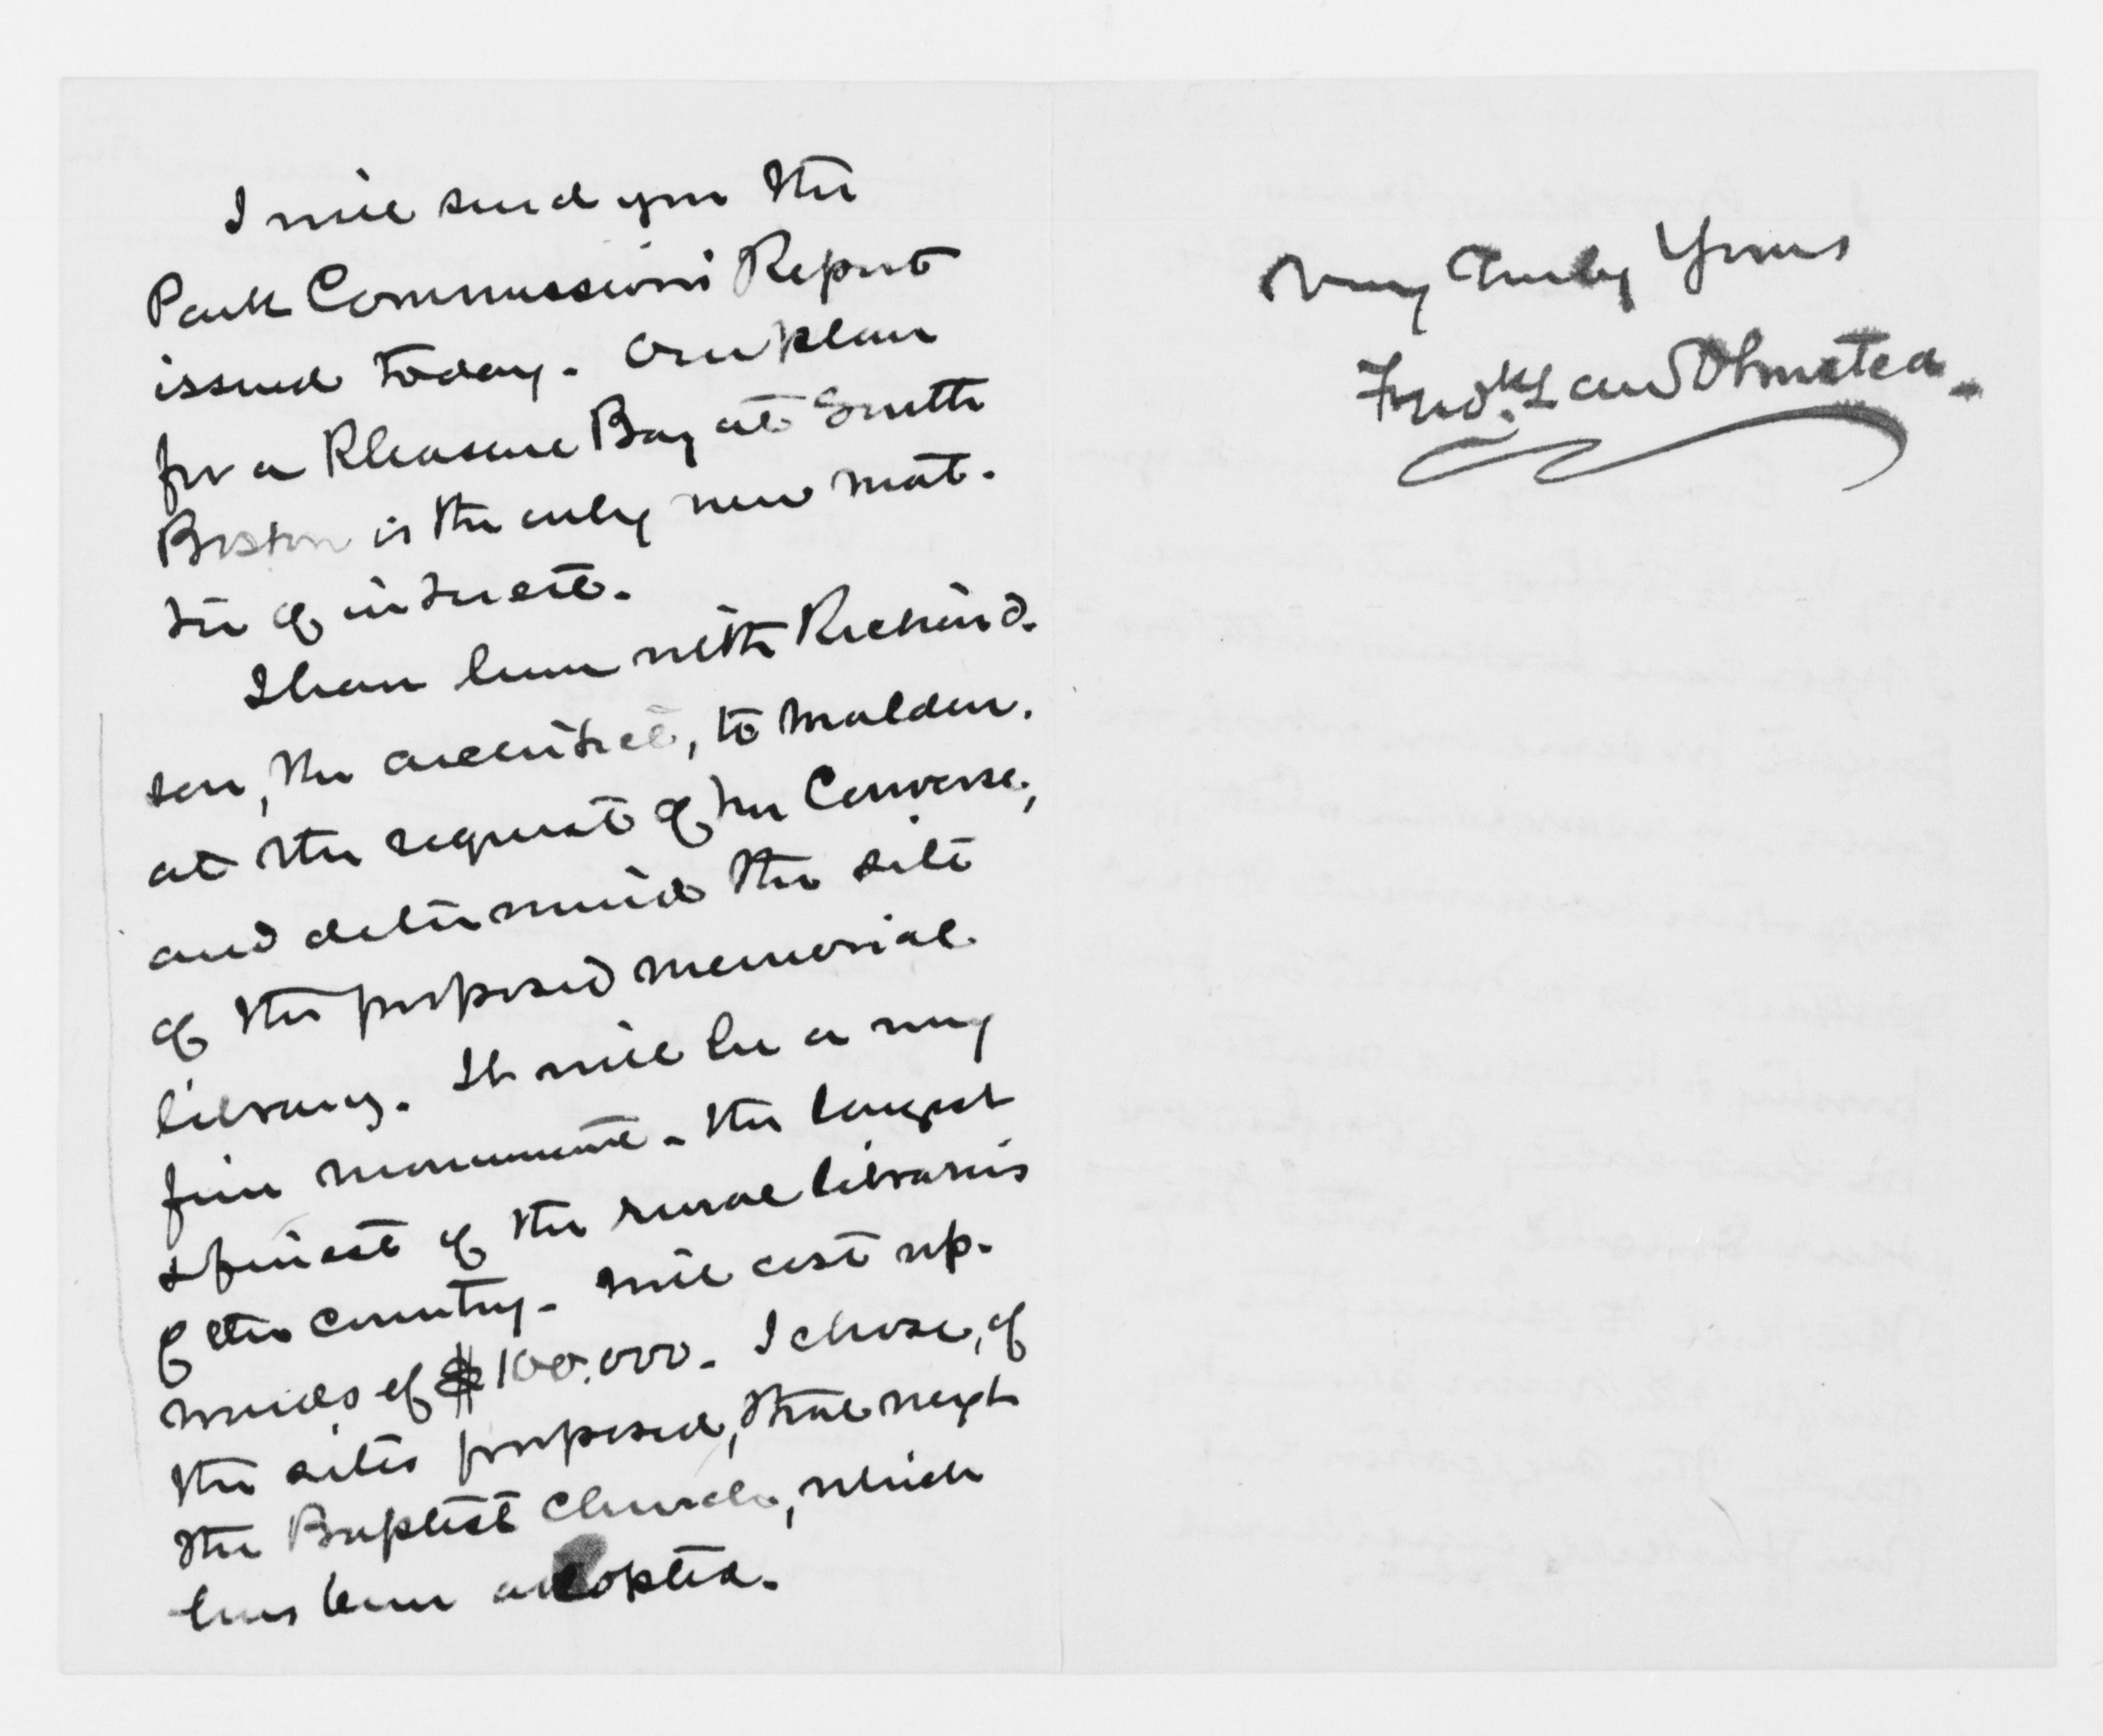 I will send you the
Park Commission's Report
issued today. Our plan
for a Pleasure Bay at South
Boston is the only new mat-
ter of interest.
I have been with Richard-
son, the architect, to Malden.
at the request of Mr Converse,
and determined the site
of the proposed memorial
library. It will be a very
fine monument - the largest
& finest of the rural libraries
of the country - will cost up-
wards of $100.000. I chose, of
the sites proposed, that next
the Baptist Church, which
has been adopted.
Very Truly Yours
Fredk. Law Olmsted.